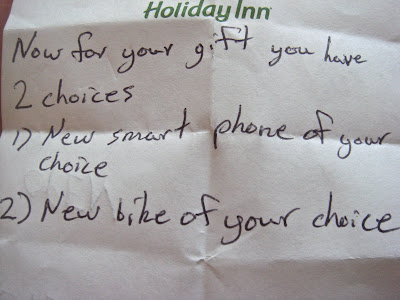 Holiday Inn
Now for your gift you have
2 choices
1) New smart phone of your
choice
2) New bike of your choice